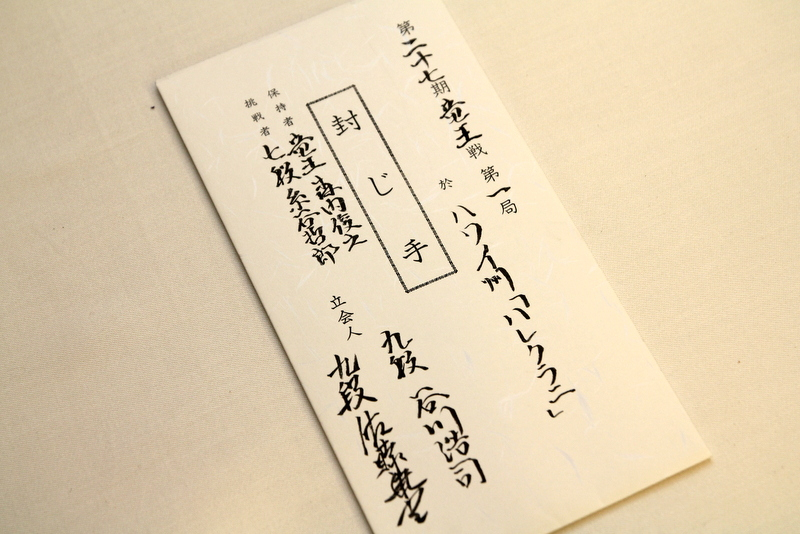 第二十七期竜王戦第一局
於 ハワイ州「ハレクラニ」
封じ手
保持者 竜王 森内俊之
挑戦者 七段 糸谷哲郎
九段 谷川浩司
立会人
九段 佐藤康光